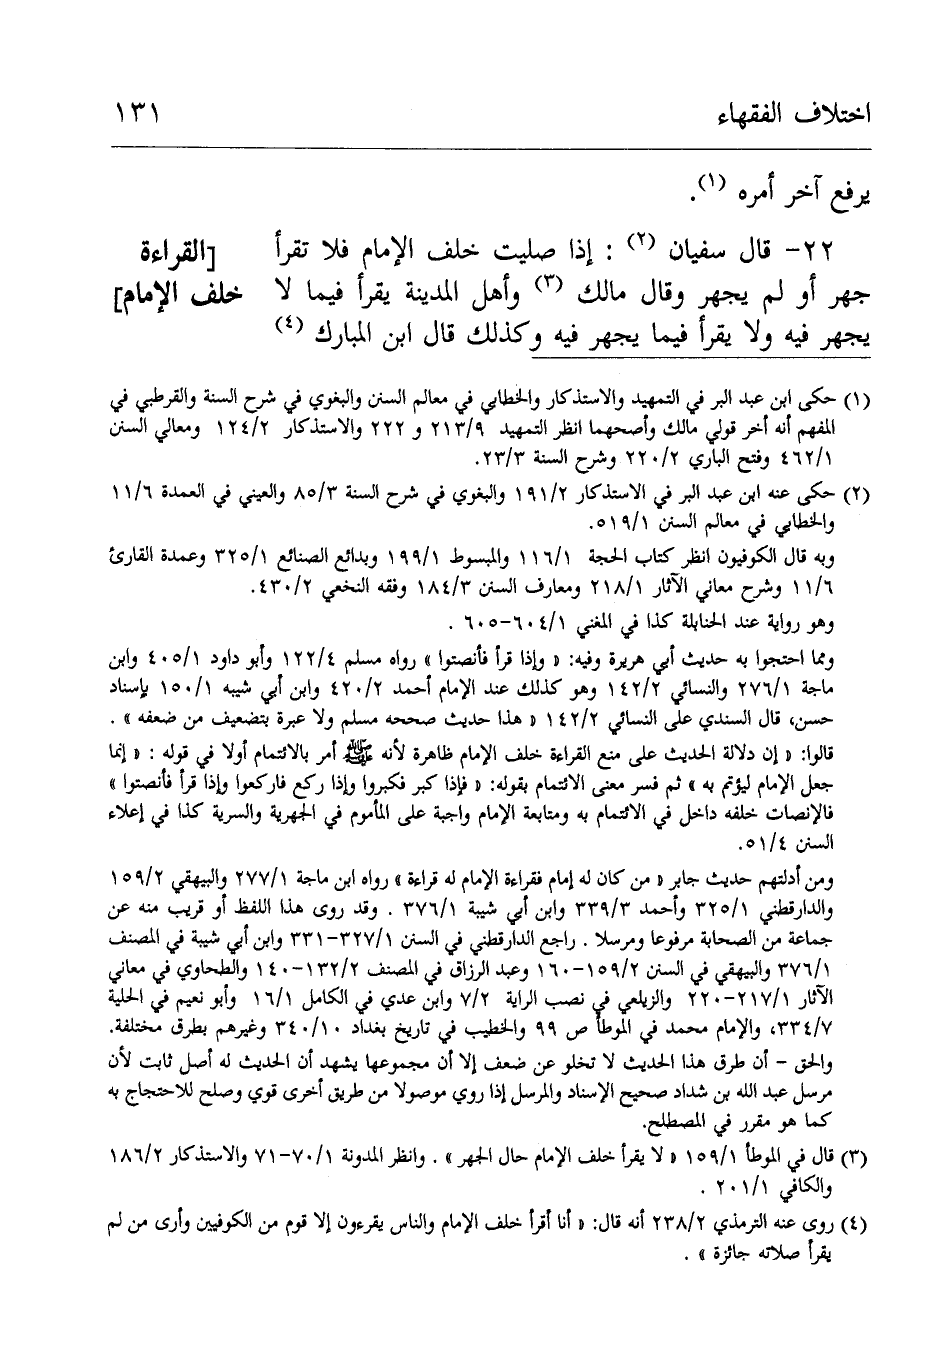 اختلاف الفقهاء ١٣١
يرفع آخر أمره (١).
٢٢- قال سفيان (٢) : إذا صليت خلف الإمام فلا تقرأ [القراءة
جهر أو لم يجهر وقال مالك (٣) وأهل المدينة يقرأ فيما لا خلف الإمام]
يجهر فيه ولا يقرأ فيما يجهر فيه وكذلك قال ابن المبارك (٤)
(١) حكى ابن عبد البر في التمهيد والاستذكار والخطابي في معالم السنن والبغوي في شرح السنة والقرطبي في
المفهم أنه أخر قولي مالك وأصحهما انظر التمهيد ٢١٣/٩ و ٢٢٢ والاستذكار ١٢٤/٢ ومعالي السنن
٤٦٢/١ وفتح الباري ٢٢٠/٢ وشرح السنة ٢٣/٣.
(٢) حكى عنه ابن عبد البر في الاستذكار ١٩١/٢ والبغوي في شرح السنة ٨٥/٣ والعيني في العمدة ١١/٦
والخطابي في معالم السنن ٥١٩/١.
وبه قال الكوفيون انظر كتاب الحجة ١١٦/١ والمبسوط ١٩٩/١ وبدائع الصنائع ٣٢٥/١ وعمدة القارئ
١١/٦ وشرح معاني الآثار ٢١٨/١ ومعارف السنن ١٨٤/٣ وفقه النخعي ٤٣٠/٢.
وهو رواية عند الحنابلة كذا في المغني ٦٠٤/١-٦٠٥ .
ومما احتجوا به حديث أبي هريرة وفيه: « وإذا قرأ فأنصتوا » رواه مسلم ١٢٢/٤ وأبو داود ٤٠٥/١ وابن
ماجة ٢٧٦/١ والنسائي ١٤٢/٢ وهو كذلك عند الإمام أحمد ٤٢٠/٢ وابن أبي شيبه ١٥٠/١ بإسناد
حسن، قال السندي على النسائي ١٤٢/٢ « هذا حديث صححه مسلم ولا عبرة بتضعيف من ضعفه » .
قالوا: « إن دلالة الحديث على منع القراءة خلف الإمام ظاهرة لأنه ﷺ أمر بالائتمام أولا في قوله : « إنما
جعل الإمام ليؤتم به » ثم فسر معنى الائتمام بقوله: « فإذا كبر فكبروا وإذا ركع فاركعوا وإذا قرأ فأنصتوا »
فالإنصات خلفه داخل في الائتمام به ومتابعة الإمام واجبة على المأموم في الجهرية والسرية كذا في إعلاء
السنن ٥١/٤.
ومن أدلتهم حديث جابر « من كان له إمام فقراءة الإمام له قراءة » رواه ابن ماجة ٢٧٧/١ والبيهقي ١٥٩/٢
والدارقطني ٣٢٥/١ وأحمد ٣٣٩/٣ وابن أبي شيبة ٣٧٦/١ . وقد روى هذا اللفظ أو قريب منه عن
جماعة من الصحابة مرفوعا ومرسلا . راجع الدارقطني في السنن ٣٢٧/١-٣٣١ وابن أبي شيبة في المصنف
٣٧٦/١ والبيهقي في السنن ١٥٩/٢-١٦٠ وعبد الرزاق في المصنف ١٣٢/٢-١٤٠ والطحاوي في معاني
الآثار ٢١٧/١-٢٢٠ والزيلعي في نصب الراية ٧/٢ وابن عدي في الكامل ١٦/١ وأبو نعيم في الحلية
٣٣٤/٧، والإمام محمد في الموطأ ص ٩٩ والخطيب في تاريخ بغداد ٣٤٠/١٠ وغيرهم بطرق مختلفة.
والحق - أن طرق هذا الحديث لا تخلو عن ضعف إلا أن مجموعها يشهد أن الحديث له أصل ثابت لأن
مرسل عبد الله بن شداد صحيح الإسناد والمرسل إذا روي موصولا من طريق أخرى قوي وصلح للاحتجاج به
كما هو مقرر في المصطلح.
(٣) قال في الموطأ ١٥٩/١ « لا يقرأ خلف الإمام حال الجهر » . وانظر المدونة ٧٠/١-٧١ والاستذكار ١٨٦/٢
والكافي ٢٠١/١ .
(٤) روى عنه الترمذي ٢٣٨/٢ أنه قال: « أنا أقرأ خلف الإمام والناس يقرءون إلا قوم من الكوفيين وأرى من لم
يقرأ صلاته جائزة » .